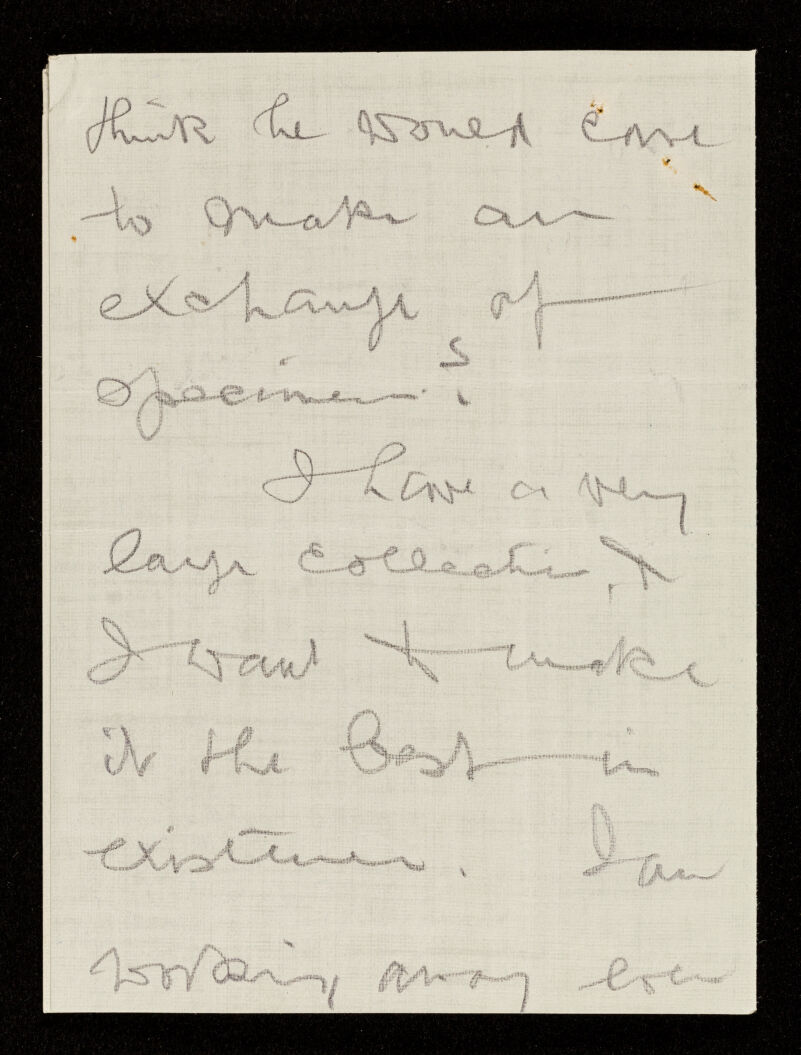 think he would care
to make an
exchange of
specimens?
I have a very
large collection, &
I want to make
it the best in
existence. I am
working away